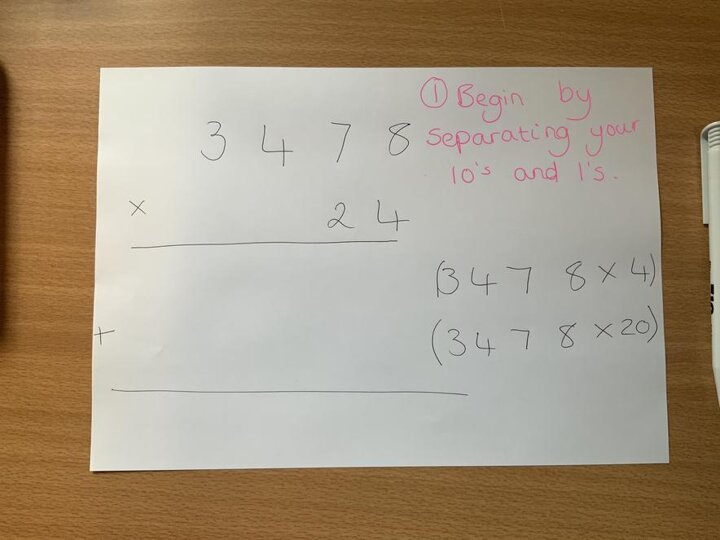 ① Begin by
3 4 7 8 separating your
10's and 1's.
× 2 4
(3 4 7 8 × 4)
+ (3 4 7 8 × 20)